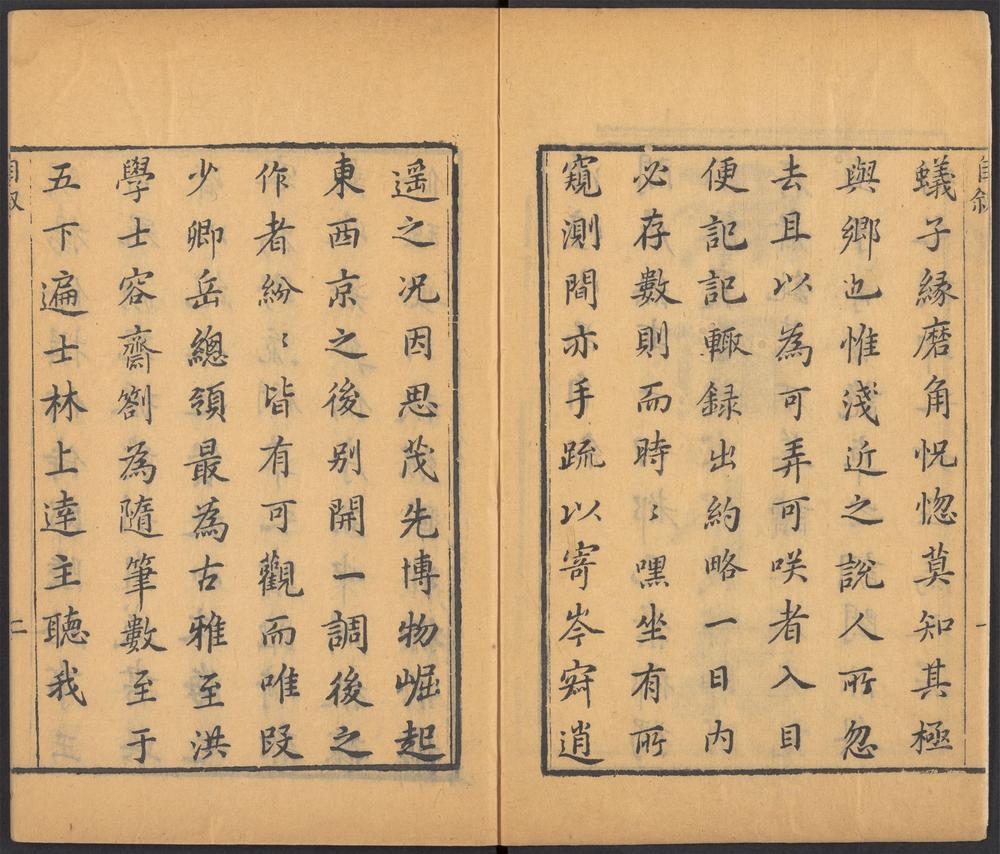 自敘
蟻子緣磨角怳惚莫知其極
與鄉也惟淺近之說人所忽
去且以為可弄可咲者入目
便記記輙録出約略一日內
必存數則而時〻嘿坐有所
窺測間亦手䟽以寄岑寂逍
一
遥之况因思茂先博物崛起
東西京之後别開一調後之
作者紛〻皆有可觀而唯段
少卿岳總領最為古雅至洪
學士容齋劄為隨筆數至于
五下遍士林上達主聽我
自敘
二